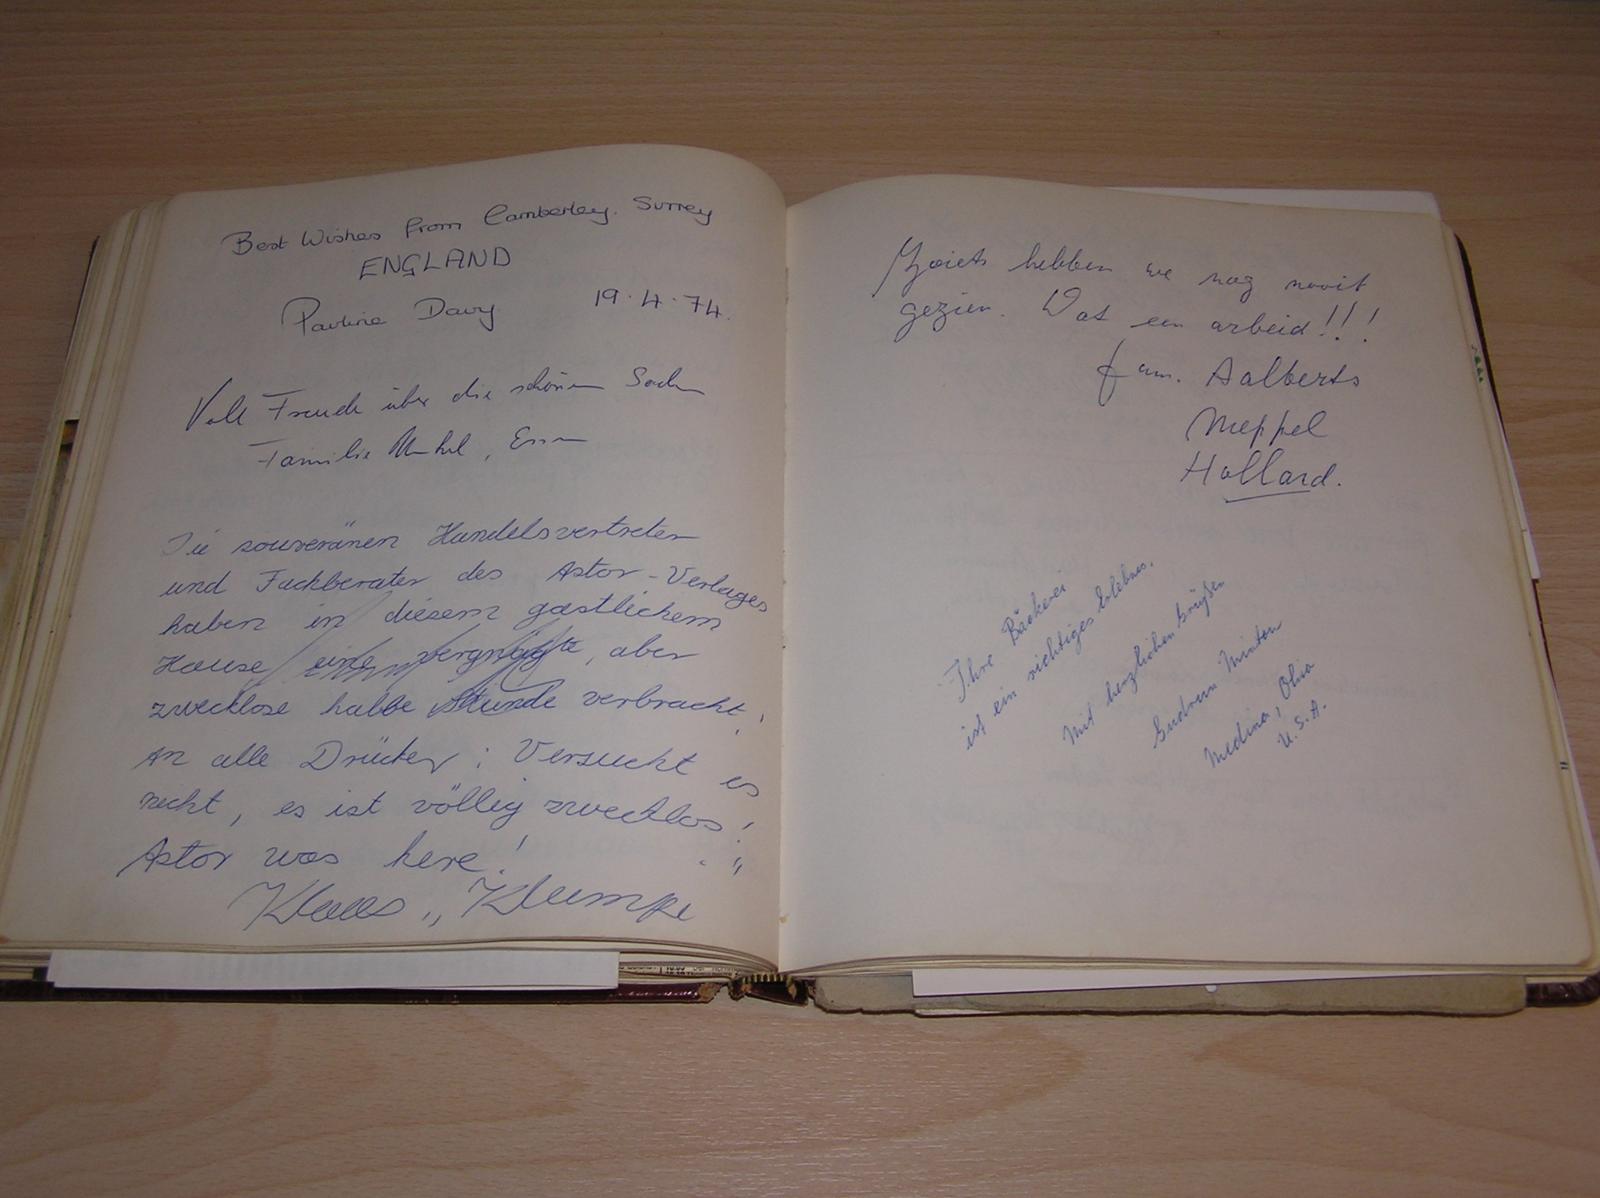 Best Wishes from Camberley. Surrey
ENGLAND
Pauline Davy 19.4.74.
Voll Freude über die schönen Sachen
Familie
Die souveränen Handelsvertreter
und Fachberater des Astor-Verlages
haben in diesem gastlichem
Hause eine vergnügte, aber
zwecklose halbe Stunde verbracht!
An alle Drücker: Versucht es
nicht, es ist völlig zwecklos!
Astor was here!
Klaus „Klumpe"
Zoiets hebben we nog nooit
gezien. Wat een arbeid!!!
fam. Aalberts
Meppel
Holland.
Ihre Bäckerei
ist ein richtiges Erlebnis.
Mit herzlichen Grüßen
Gudrun Minton
Medina, Ohio
U.S.A.